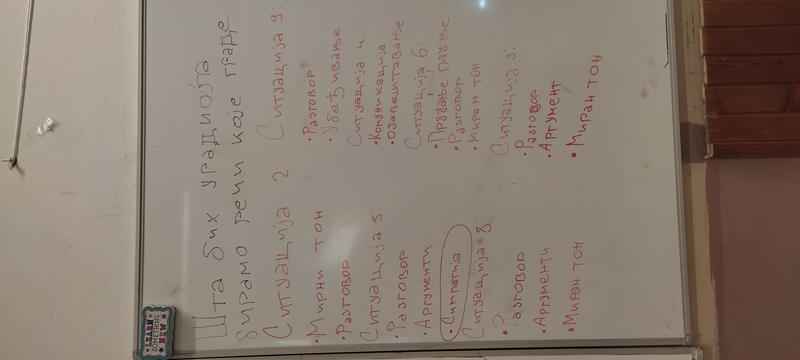 Шта бих урадио/ла
бирамо речи које граде
Ситуација 2:
• Мирни тон
• Разговор
Ситуација 5:
• Разговор
Аргументи
• Симпатија
Ситуација 8:
Разговор
• Аргументи
• Миран тон
Ситуација 9:
• Разговор
• Убеђивање
Ситуација 4:
• Комуникација
• Обавештавање
Ситуација 6:
• Пружање пажње
• Разговор
• Миран тон
Ситуација 3:
• Разговор
• Аргумент
• Миран тон
LEARN
SOMETHING
NEW